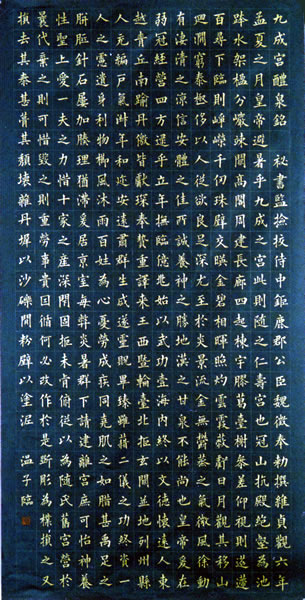 九成宮醴泉銘 祕書監撿挍侍中鉅鹿郡公臣魏徵奉勑撰維貞觀六年
孟夏之月皇帝避暑乎九成之宮此則隨之仁壽宮也冠山抗殿絕壑為池
跨水架楹分巖竦闕高閣周建長廊四起棟宇膠葛臺榭參差仰視則迢遰
百尋下臨則崢嶸千仞珠壁交暎金碧相暉照灼雲霞蔽虧日月觀其移山
迴澗窮泰極侈以人從欲良足深尤至於炎景流金無欝蒸之氣微風徐動
有淒清之涼信安體之佳所誠養神之勝地漢之甘泉不能尚也皇帝爰在
弱冠經營四方逮乎立年撫臨億兆始以武功壹海內終以文德懷遠人東
越青丘南踰丹徼皆獻琛奉贄重譯來王西曁輪臺北拒玄闕並地列州縣
人充編戶氣淑年和邇安遠肅群生咸遂靈貺畢臻雖藉二儀之功終資一
人之慮遺身利物櫛風沐雨百姓為心憂勞成疾同堯肌之如腊甚禹足之
胼胝針石屢加腠理猶滯爰居京室每弊炎暑群下請建離宮庶可怡神養
性聖上愛一夫之力惜十家之產深閉固拒未肯俯從以為隨氏舊宮營於
曩代棄之則可惜毀之則重勞事貴因循何必改作於是斲彫為樸損之又
損去其泰甚葺其頹壞雜丹墀以沙礫間粉壁以塗泥 溫子臨